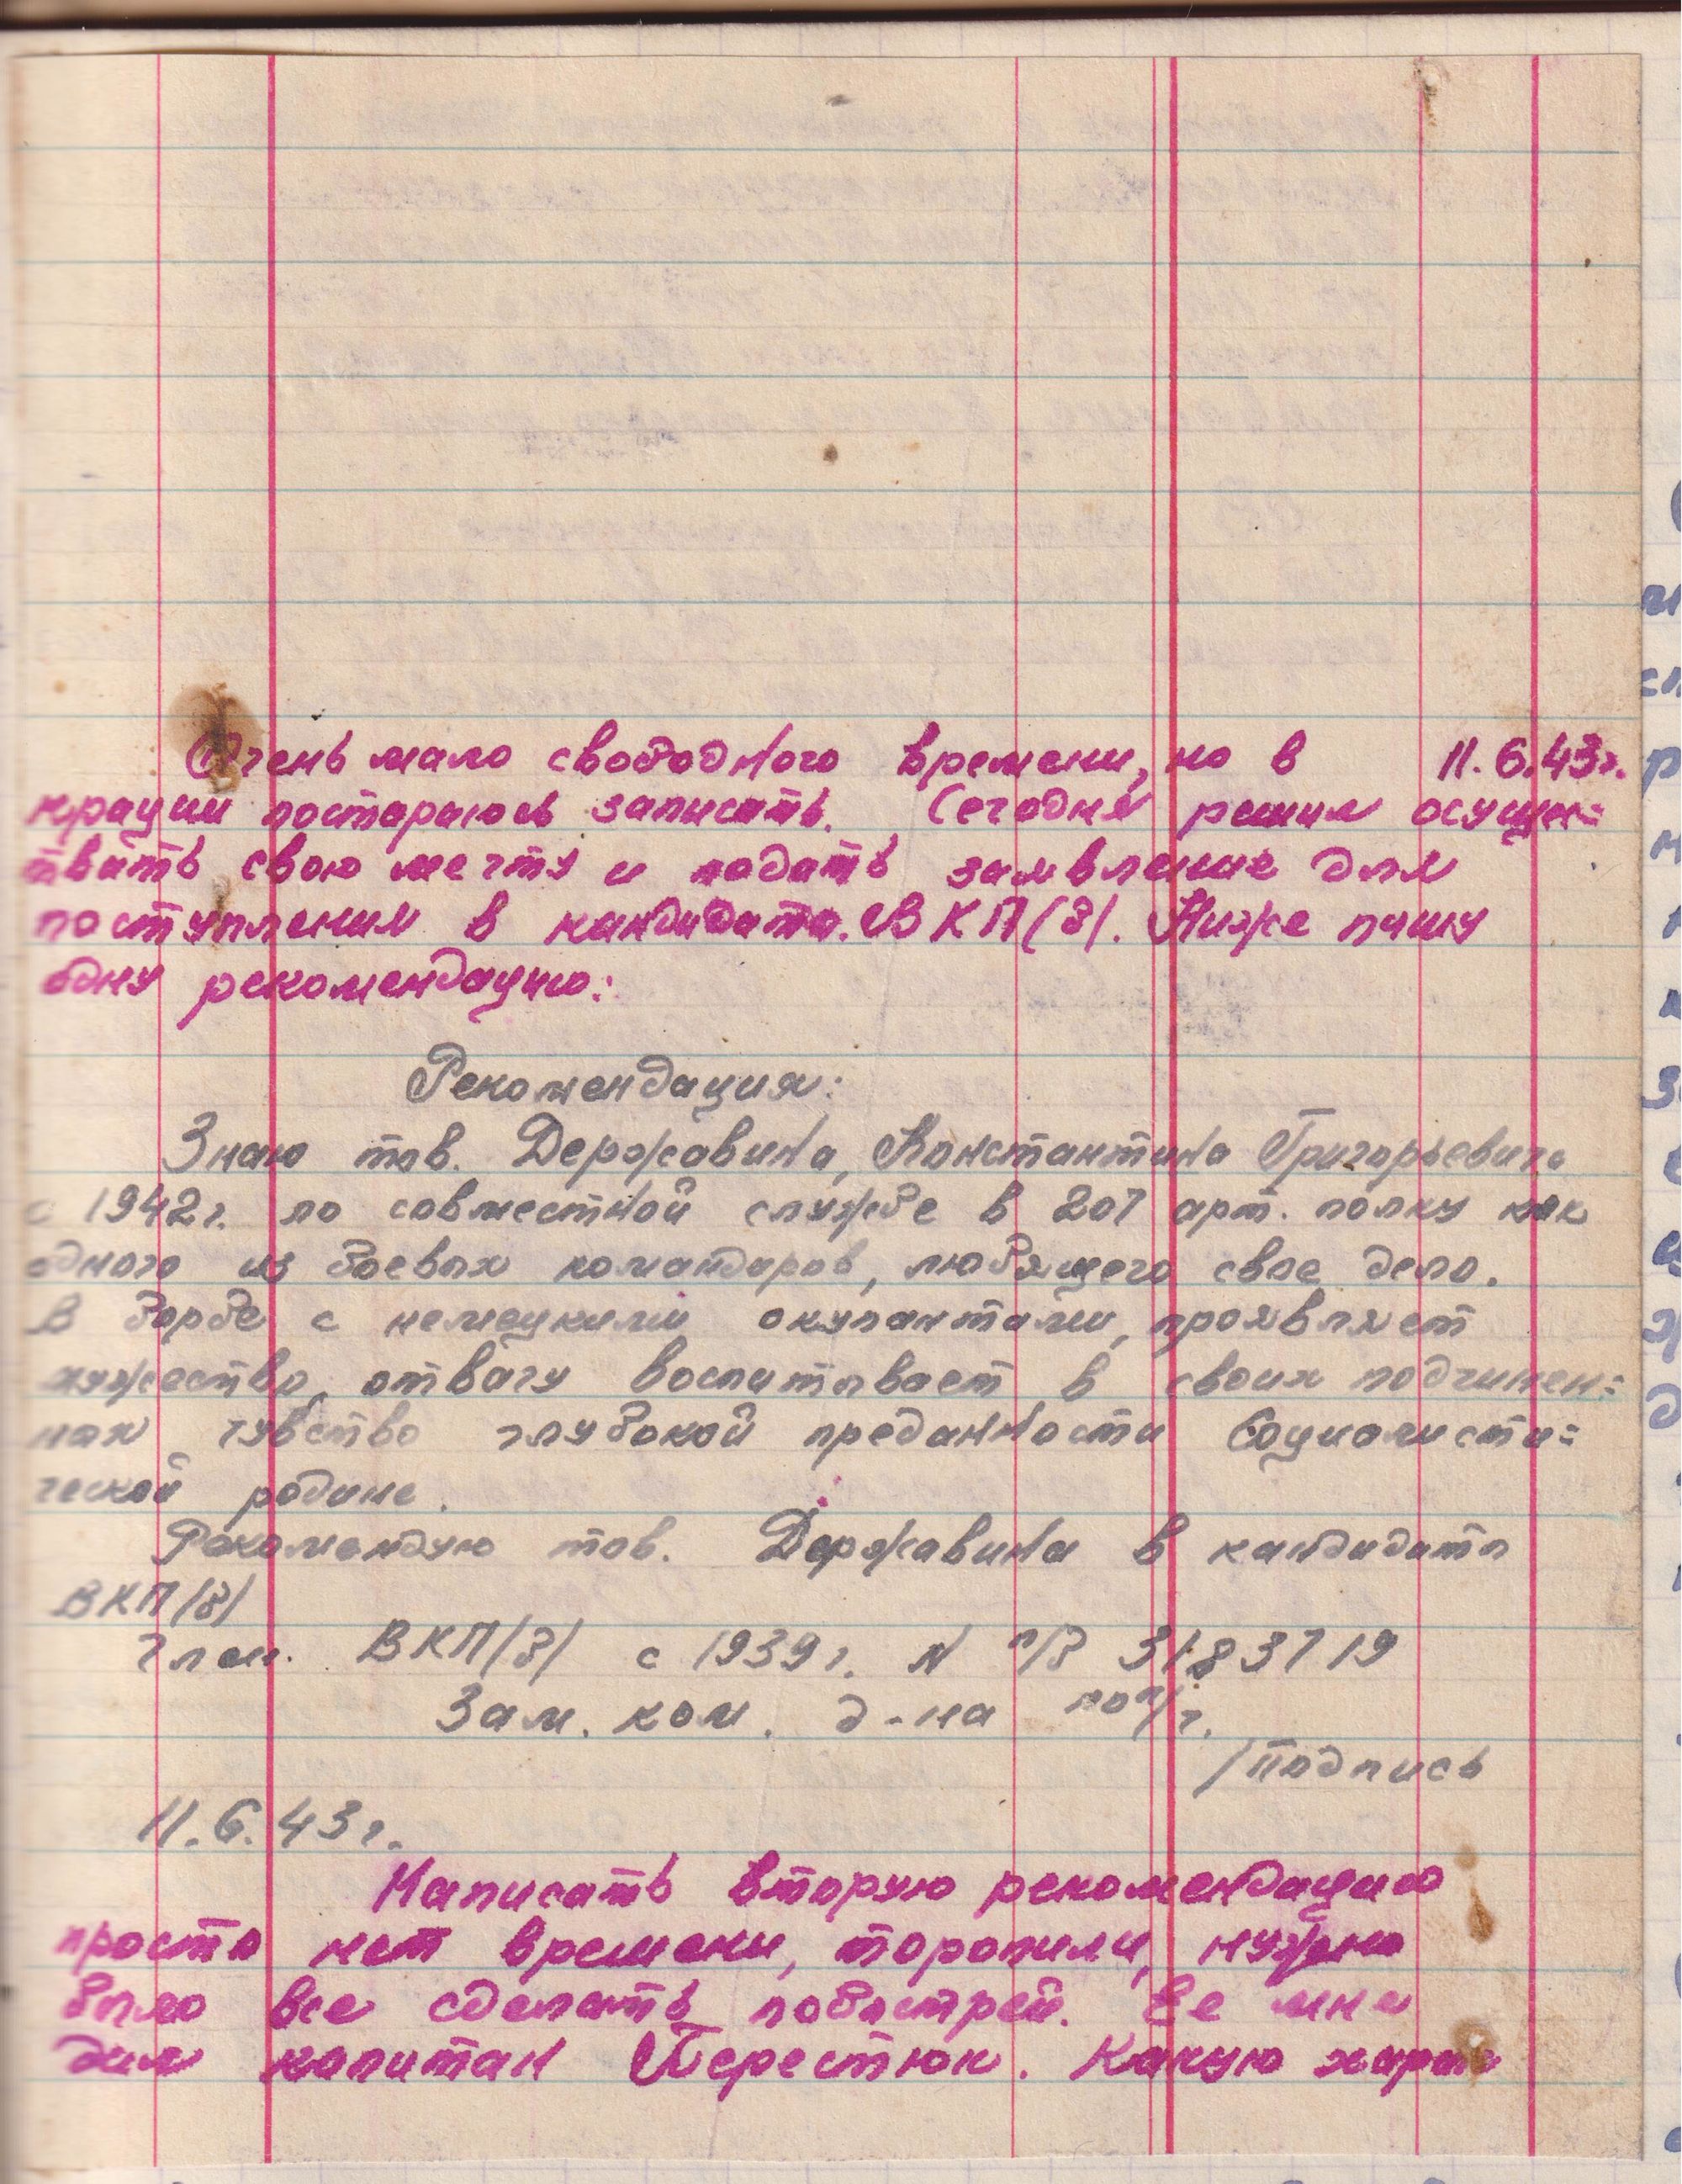 Очень мало свободного времени, но в 11.6.43г.
крации постараюсь записать. Сегодня решил осущес=
твить свою мечту и подать заявление для
поступления в кандидаты. ВКП(б). Ниже пишу
одну рекомендацию:
Рекомендация:
Знаю тов. Державина, Константина Григорьевича
с 1942г. по совместной службе в 207 арт. полку как
одного из боевых командиров, любящего свое дело.
В борбе с немецкими окупантами, проявляет
мужество, отвагу воспитывает в своих подчинен=
ных чувство глубокой преданности Социалисти=
ческой родине.
Рекомендую тов. Державина в кандидаты
ВКП/б/
Член. ВКП/б/ с 1939г. N п/б 3183719
Зам. ком. д-на по п/ч.
/Подпись
11.6.43г.
Написать вторую рекомендацию
просто нет времени, торопили, нужно
было все сделать побыстрей. Ее мне
дал капитан Перестюк. Какую харак